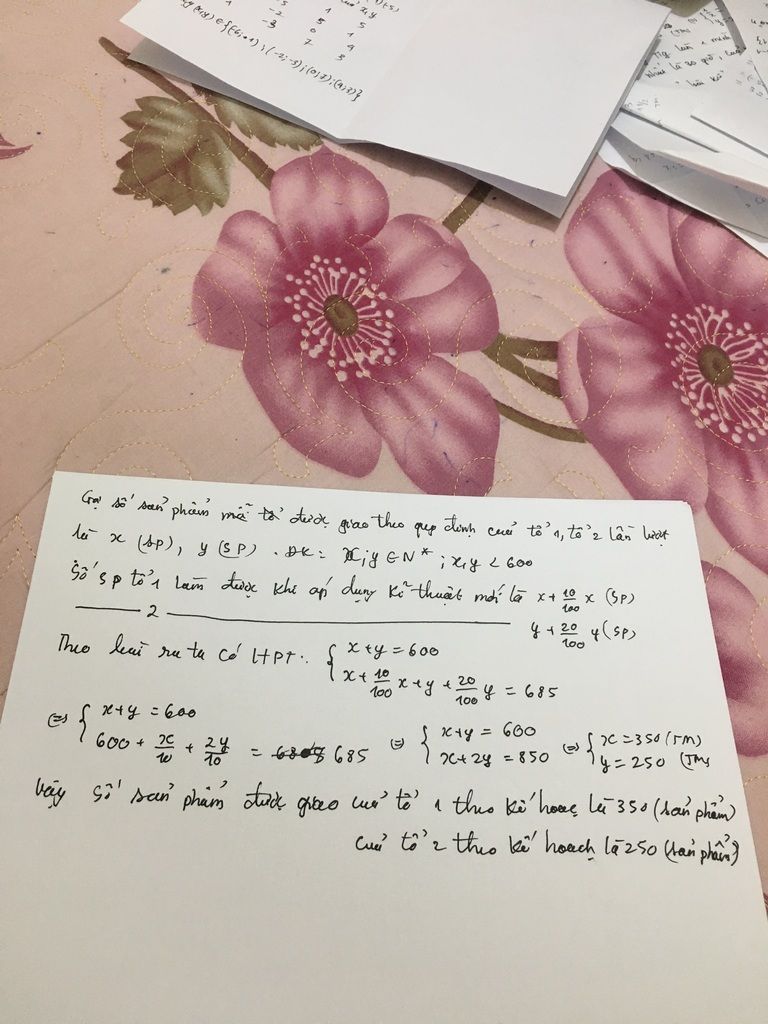 1 -5 1 5
-2 5 1
-3 0 9
7 3
(x;y) ∈ {(6;-1);(-2;-3);(0;7);(4;3)}
Gọi số sản phẩm mà tổ được giao theo quy định của tổ 1, tổ 2 lần lượt
là x (sp), y (SP). ĐK: x;y ∈ N*; x,y < 600
Số sp tổ 1 làm được khi áp dụng kĩ thuật mới là x + 10/100 x (SP)
— 2 — y + 20/100 y (SP)
Theo bài ra ta có HPT: { x+y = 600
x + 10/100 x + y + 20/100 y = 685
⇔ { x+y = 600
600 + x/10 + 2y/10 = 685 ⇔ { x+y = 600
x+2y = 850 ⇔ { x = 350 (TM)
y = 250 (TM)
Vậy số sản phẩm được giao của tổ 1 theo kế hoạc là 350 (sản phẩm)
của tổ 2 theo kế hoạch là 250 (sản phẩm)